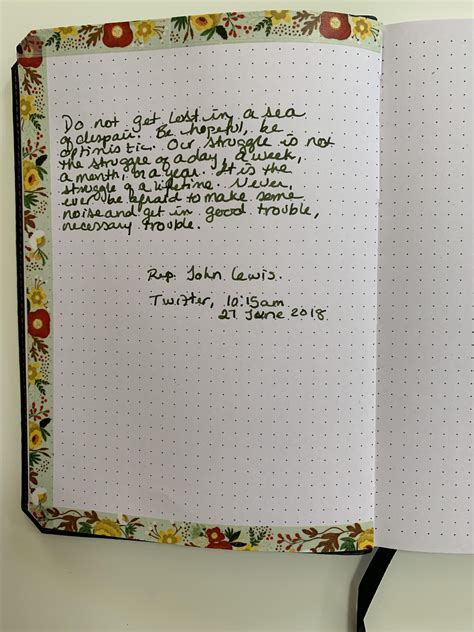 Do not get lost in a sea
of despair. Be hopeful, be
optimistic. Our struggle is not
the struggle of a day, a week,
a month, or a year. It is the
struggle of a lifetime. Never,
ever be afraid to make some
noise and get in good trouble,
necessary trouble.
Rep. John Lewis.
Twitter, 10:15am
27 June 2018